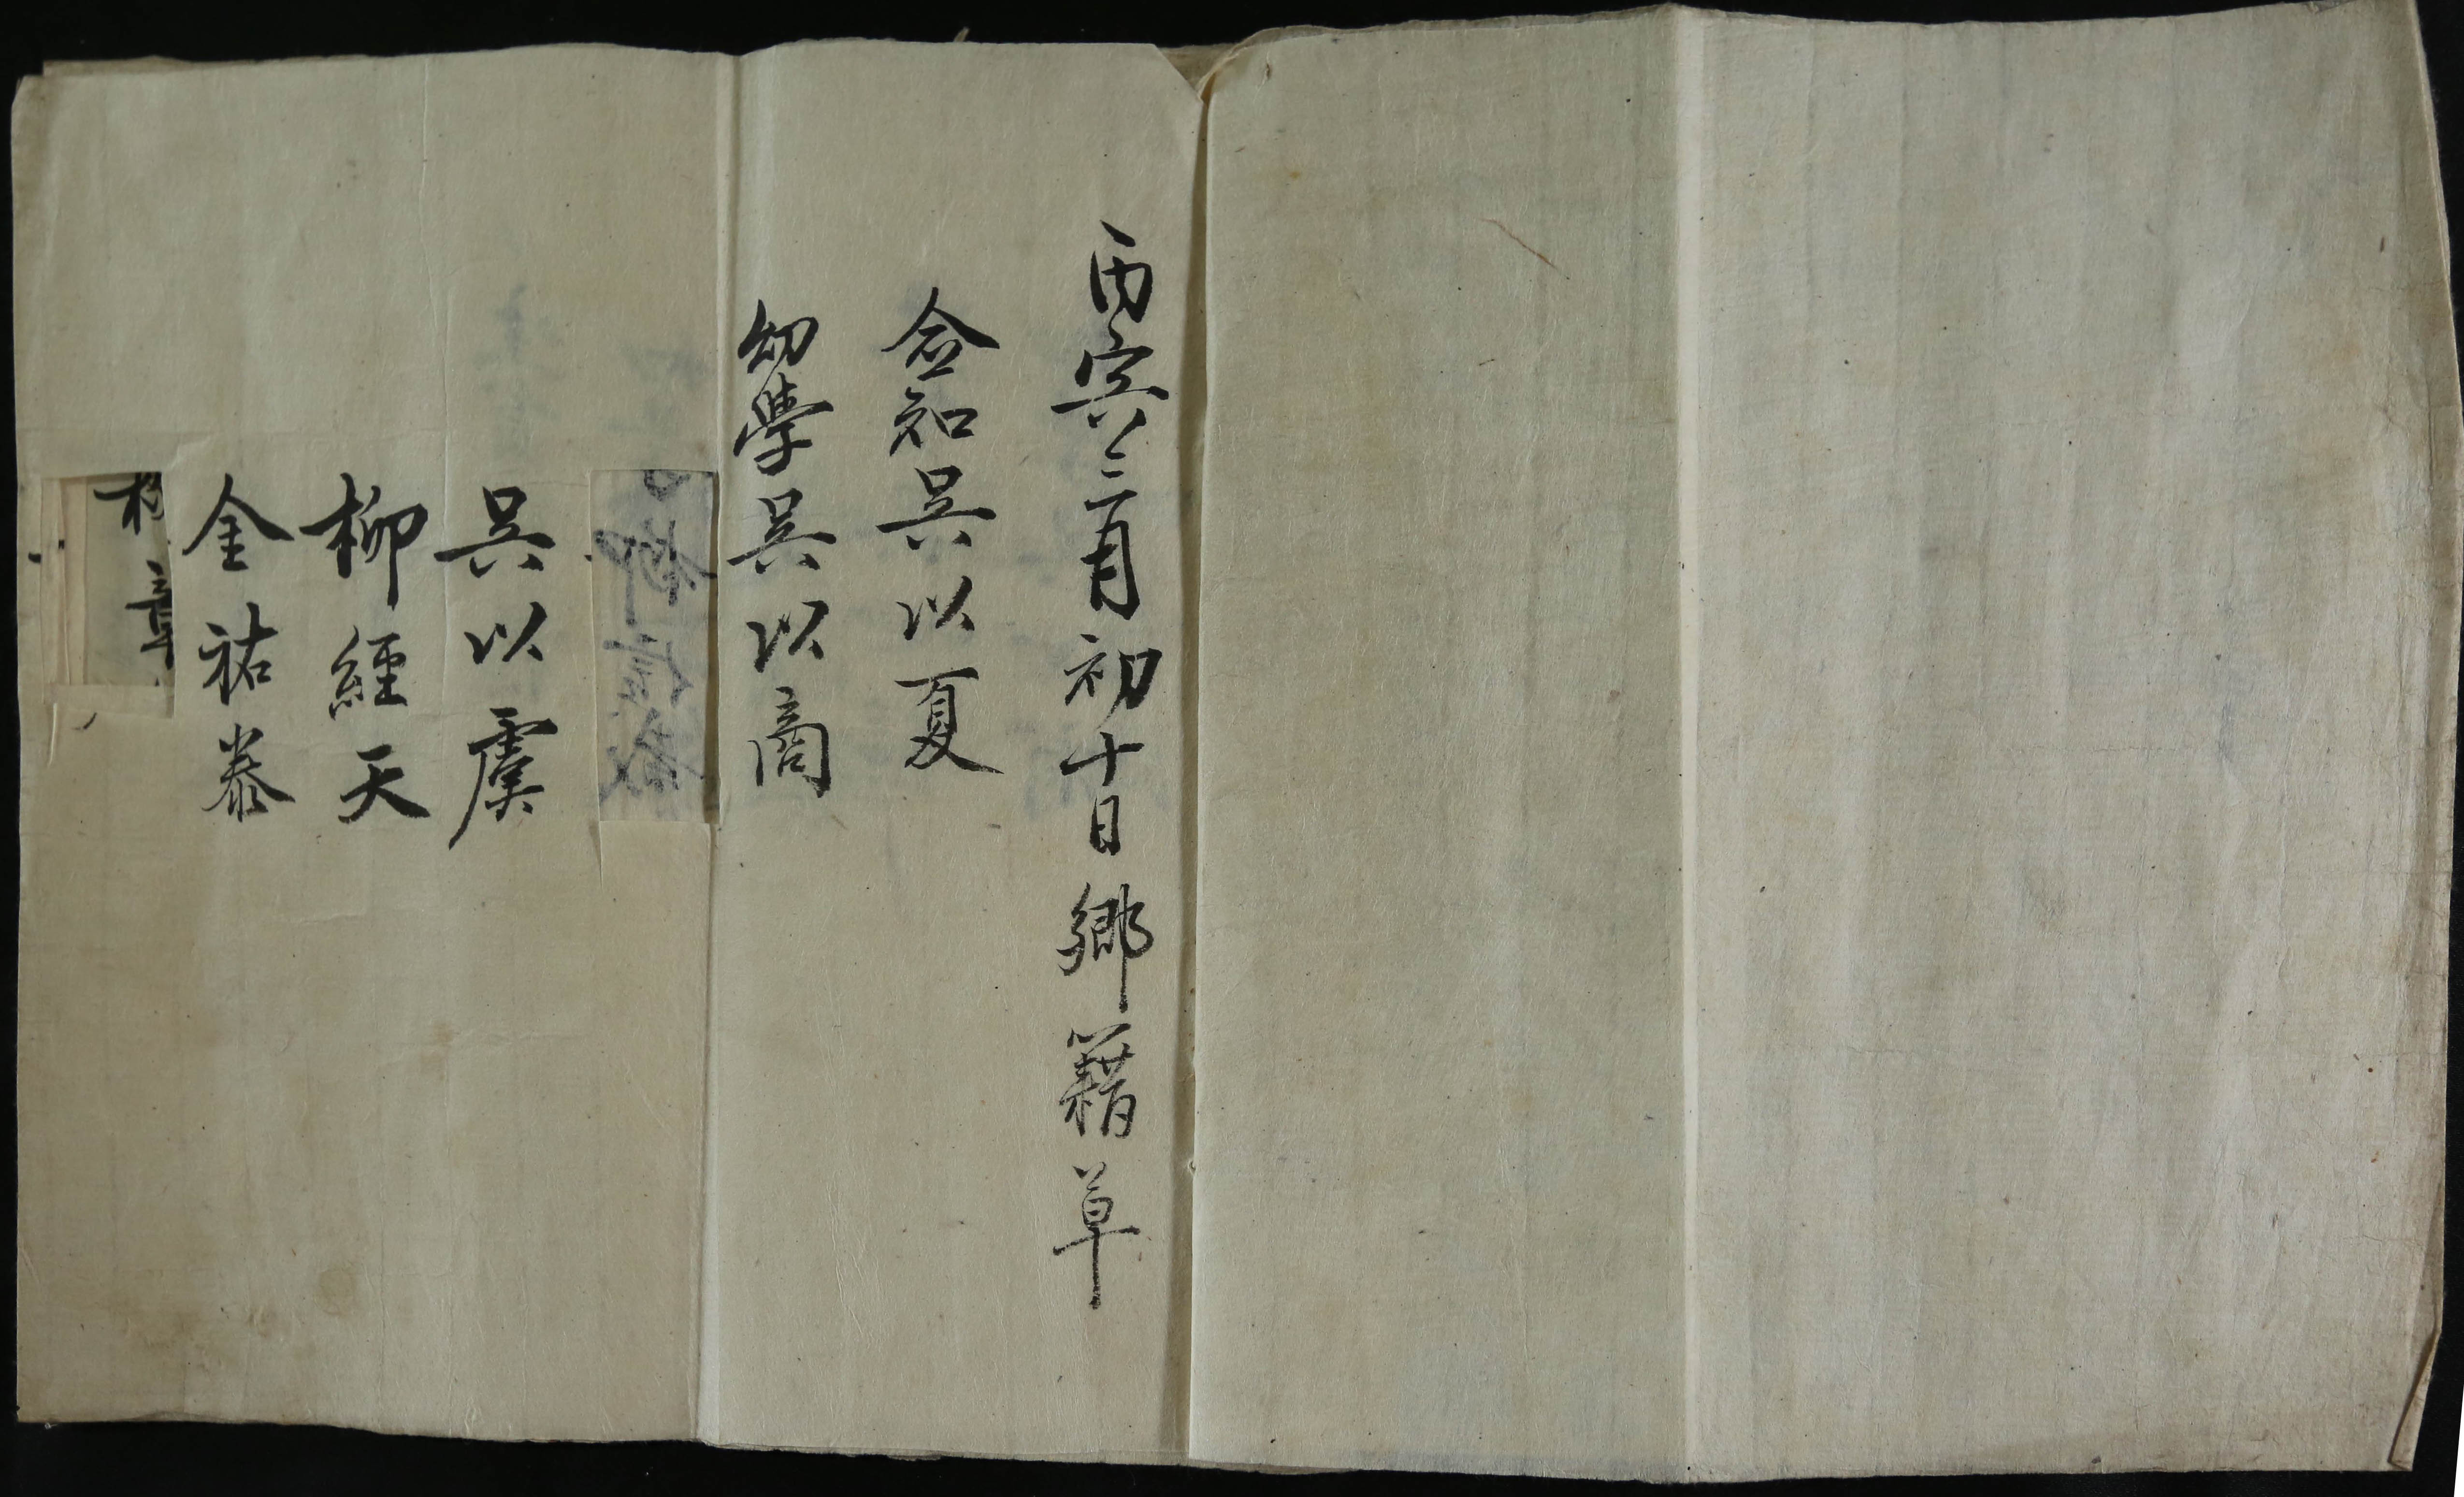 丙寅三月初十日鄕籍草
僉知吳以夏
幼學吳以商
吳以虞
柳經天
金祐泰
章